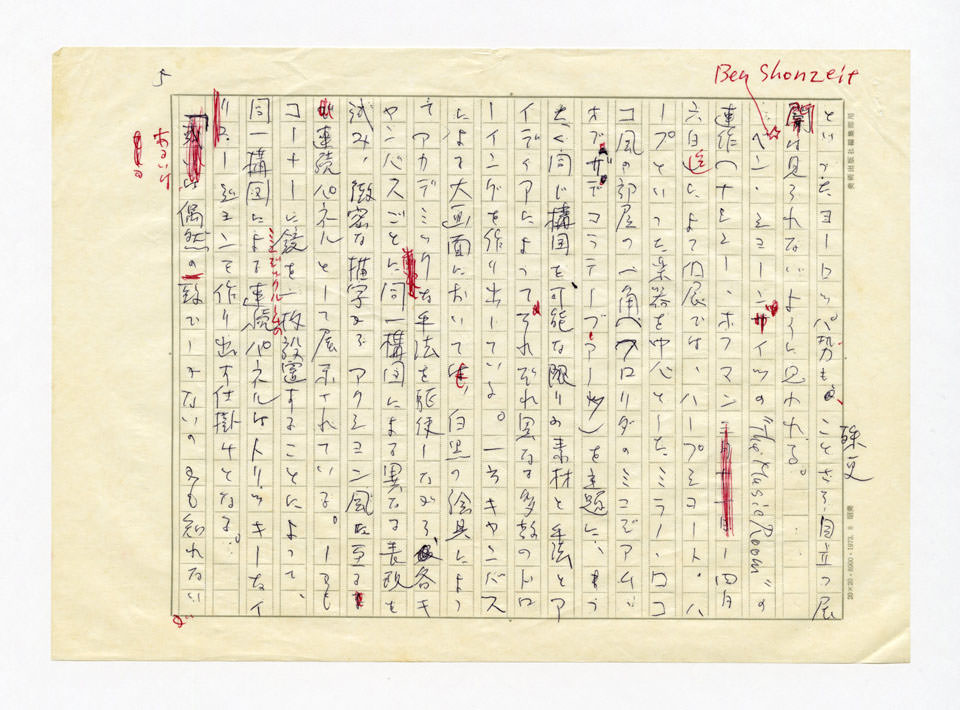 5
Ben Shonzeit
といったヨーロッパ勢も、ことさら目立つ展
開は見られないように思われる。
ベン・ショーンザイツの"The Music Room"の
連作(ナンシー・ホフマン ー四月
六日迄)によって同展では、ハープシコート、ハ
ープといった楽器を中心としたミラー・ロコ
コ風の部屋の一角(フロリダの
を主題に、
たく同じ構図を、可能な限りの素材と手法とア
イディアによってそれぞれ異なる多数のドロ
ーイングを作り出している。一方キャンバス
によって大画面において、白黒の絵具によっ
てアカデミックな手法を駆使しながら、各キ
ャンバスごとに同一構図による異なる表現を
試み、緻密な描写からアクション風に至る
連続パネルとして展示されている。しかも
コーナーに鏡を一枚設置することによって、
同一構図による連続パネルはトリッキーなイ
リュージョンを作り出す仕掛けとなる。
あるいは
偶然の一致でしかないのかも知れない
美術出版社編集部用
20×20・5000・1973. 8 昭英